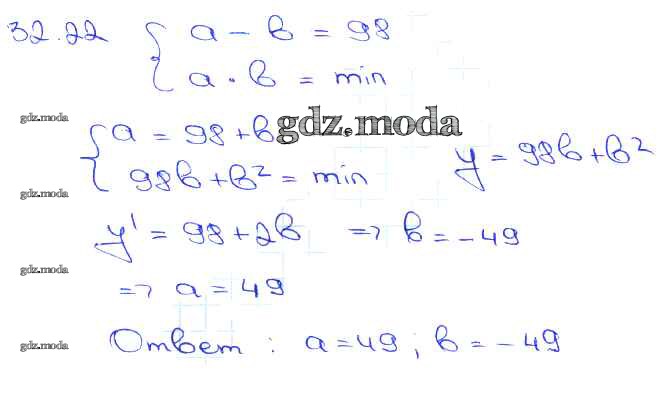 32.22 { a - b = 98
a · b = min
gdz.moda
{ a = 98 + b gdz.moda
98b + b² = min y = 98b + b²
gdz.moda
y' = 98 + 2b => b = -49
gdz.moda
=> a = 49
gdz.moda Ответ : a = 49 ; b = -49